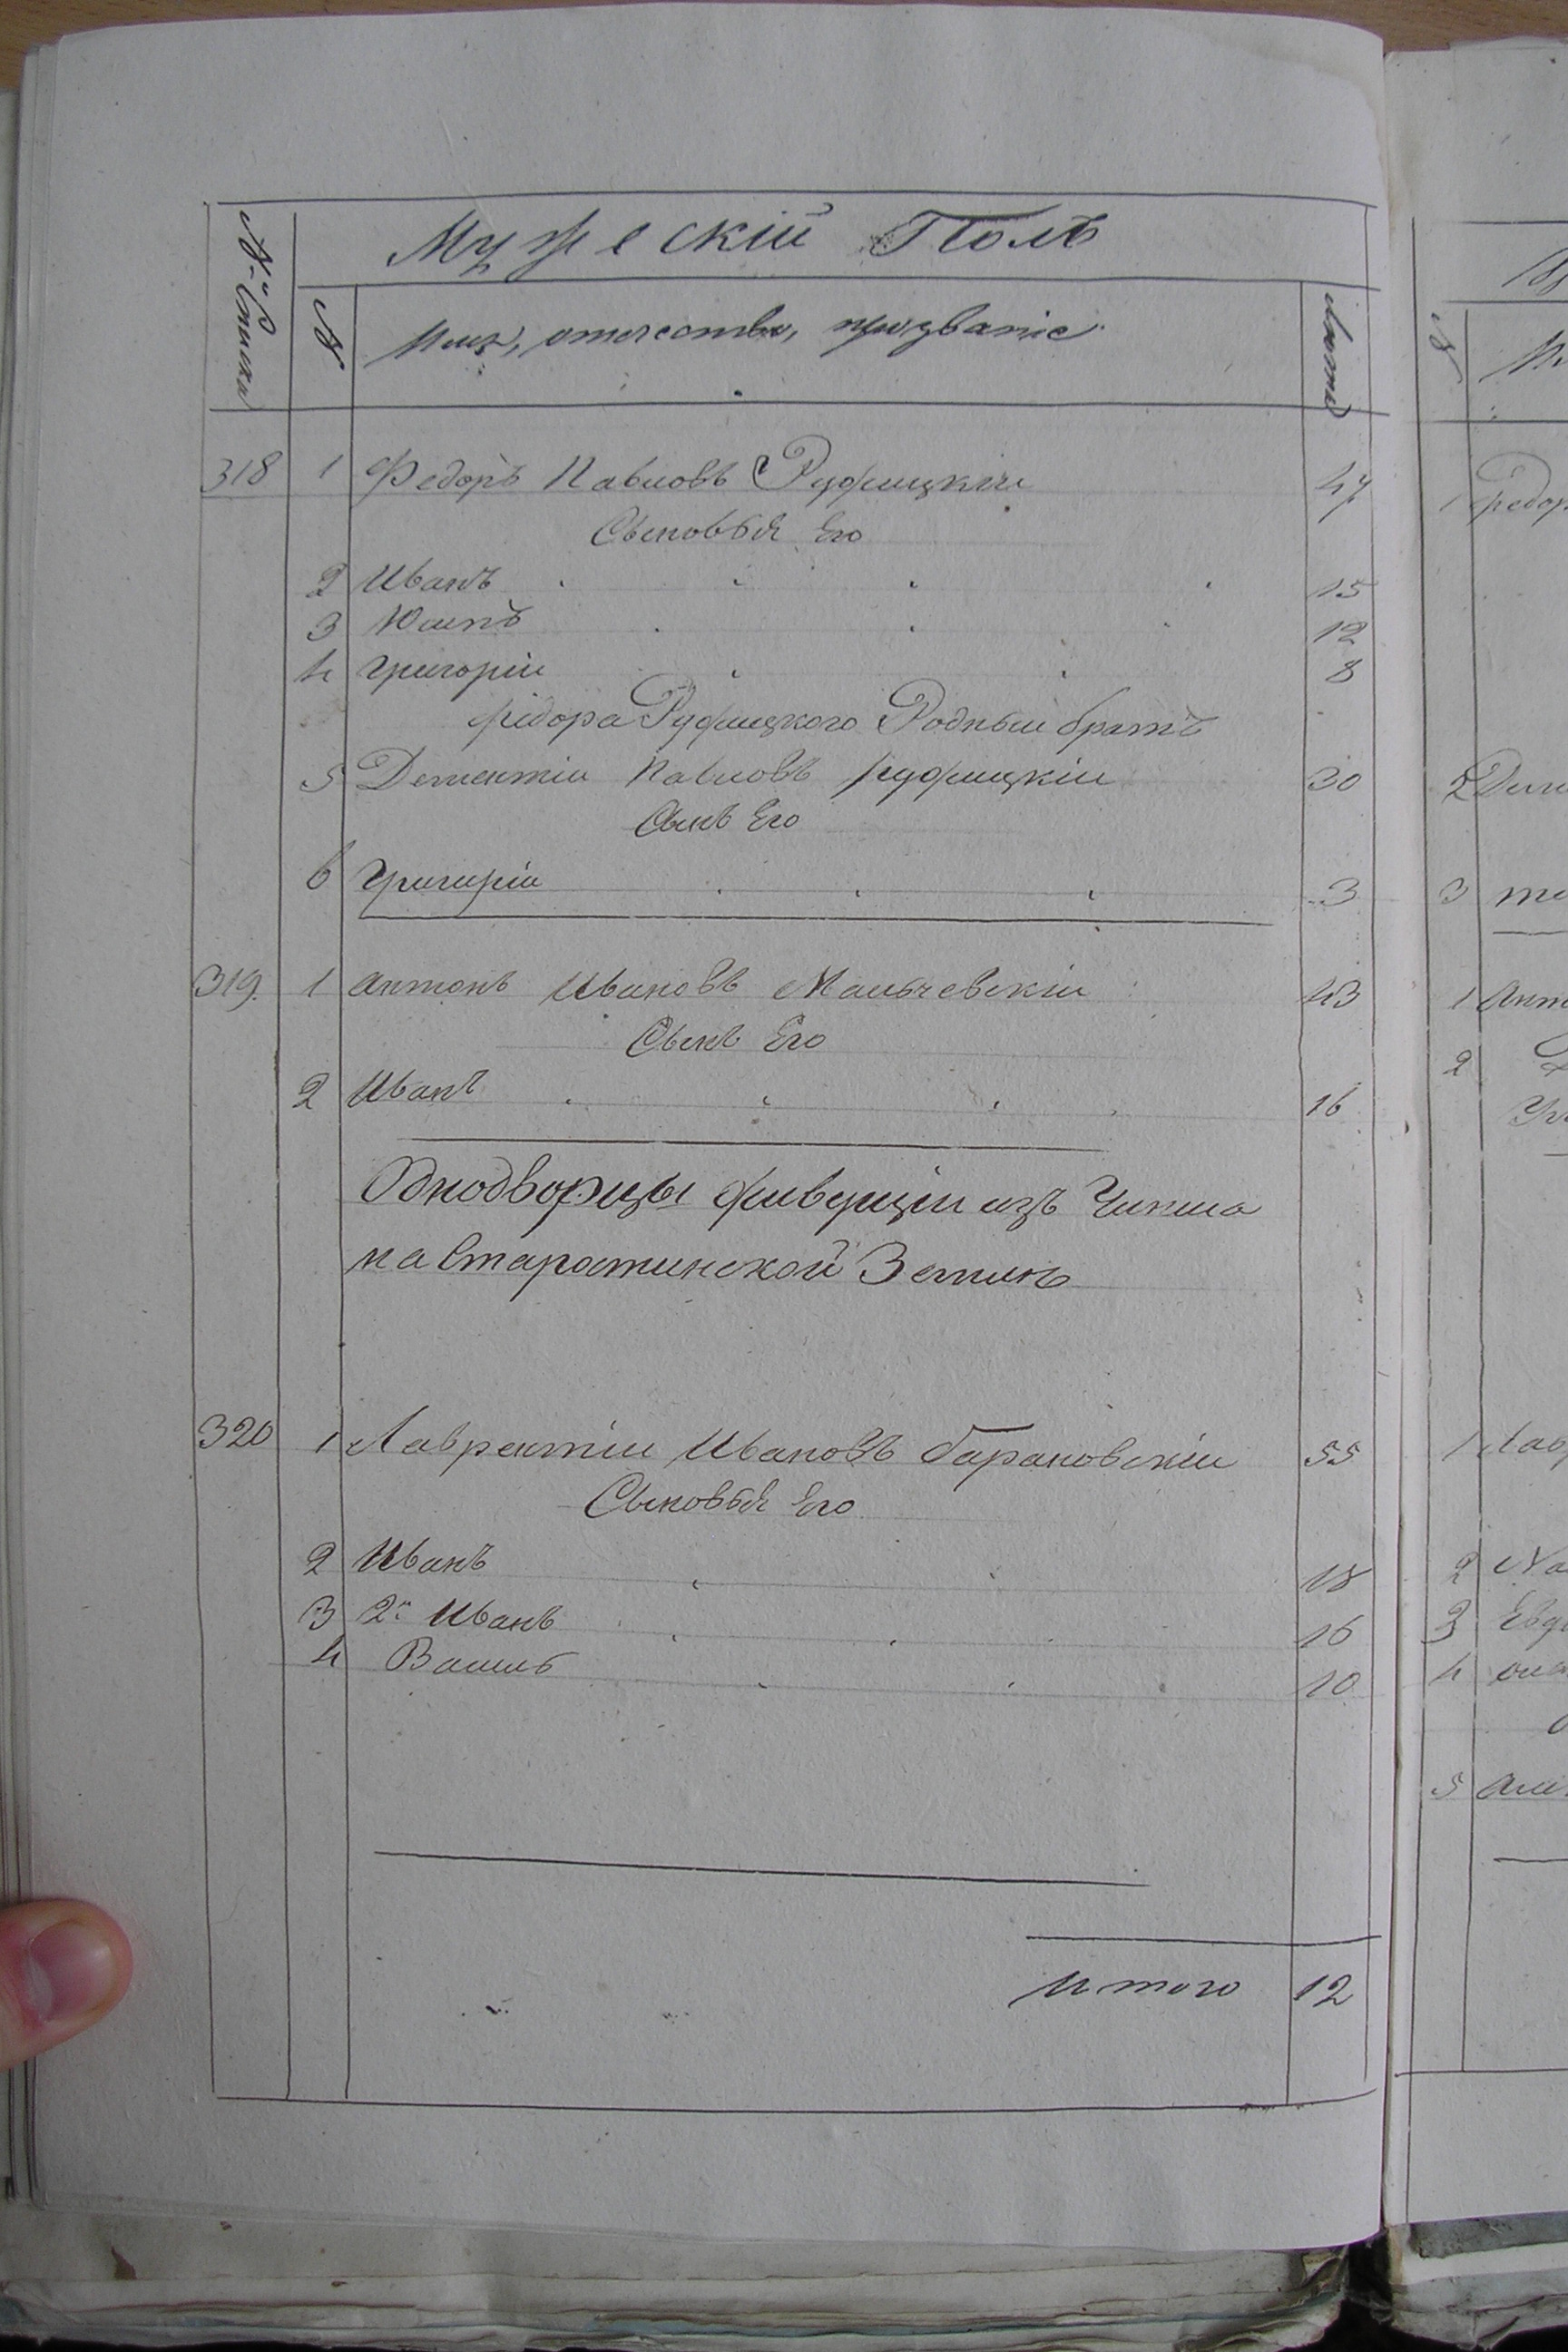 Мужескій Полъ
№ Списка
№
Имя, отечество, прозваніе
Лета
318 1 Федоръ Павловъ Рудницкій 47
Сыновья Его
2 Иванъ 15
3 Юлиъ 12
4 Григорій 8
Федора Рудницкого Родный братъ
5 Дементій Павловъ Рудницкій 30
Сынъ Его
6 Григорій 3
319 1 Антонъ Ивановъ Мальчевскій 43
Сынъ Его
2 Иванъ 16
Однодворцы живущіи изъ Чинша
на Старостинской Земли
320 1 Лаврентій Ивановъ Барановскій 55
Сыновья Его
2 Иванъ 18
3 2й Иванъ 16
4 10
Итого 12
№
1 Федор
2 Дем
3
1 Ант
2
1 Лав
2 На
3 Евд
4
5